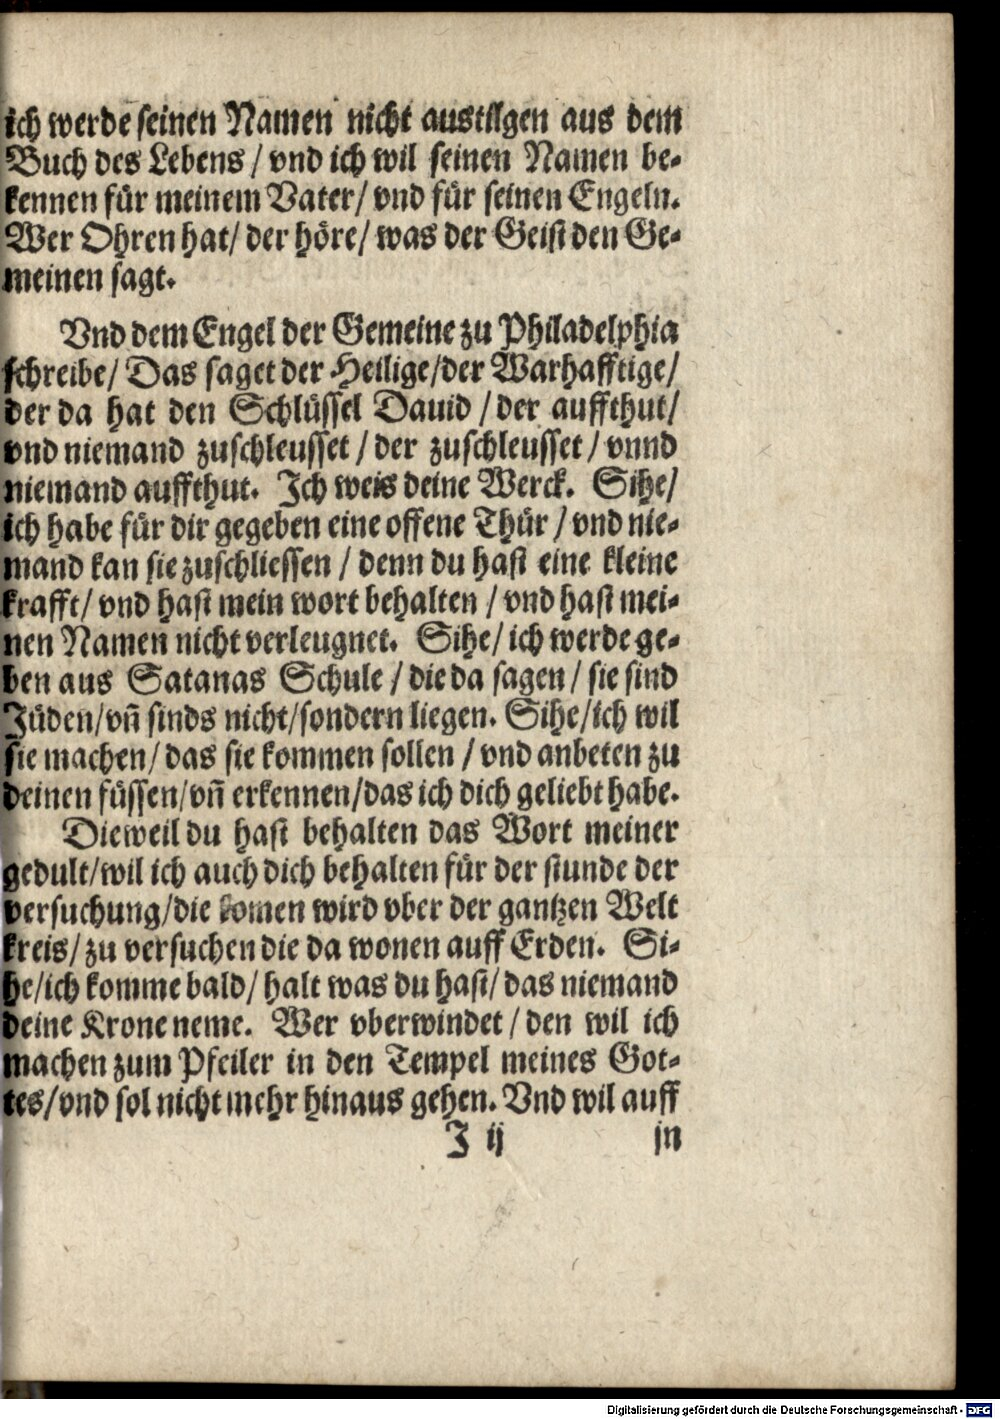 ich werde seinen Namen nicht austilgen aus dem
Buch des Lebens / vnd ich wil seinen Namen be-
kennen für meinem Vater / vnd für seinen Engeln.
Wer Ohren hat / der höre / was der Geist den Ge-
meinen sagt.
Vnd dem Engel der Gemeine zu Philadelphia
schreibe / Das saget der Heilige / der Warhafftige /
der da hat den Schlüssel Dauid / der auffthut /
vnd niemand zuschleusset / der zuschleusset / vnnd
niemand auffthut. Ich weis deine Werck. Sihe /
ich habe für dir gegeben eine offene Thür / vnd nie-
mand kan sie zuschliessen / denn du hast eine kleine
krafft / vnd hast mein wort behalten / vnd hast mei-
nen Namen nicht verleugnet. Sihe / ich werde ge-
ben aus Satanas Schule / die da sagen / sie sind
Jüden / vn̄ sinds nicht / sondern liegen. Sihe / ich wil
sie machen / das sie kommen sollen / vnd anbeten zu
deinen füssen / vn̄ erkennen / das ich dich geliebt habe.
Dieweil du hast behalten das Wort meiner
gedult / wil ich auch dich behalten für der stunde der
versuchung / die komen wird vber der gantzen Welt
kreis / zu versuchen die da wonen auff Erden. Si-
he / ich komme bald / halt was du hast / das niemand
deine Krone neme. Wer vberwindet / den wil ich
machen zum Pfeiler in den Tempel meines Got-
tes / vnd sol nicht mehr hinaus gehen. Vnd wil auff
J ij jn
Digitalisierung gefördert durch die Deutsche Forschungsgemeinschaft - DFG